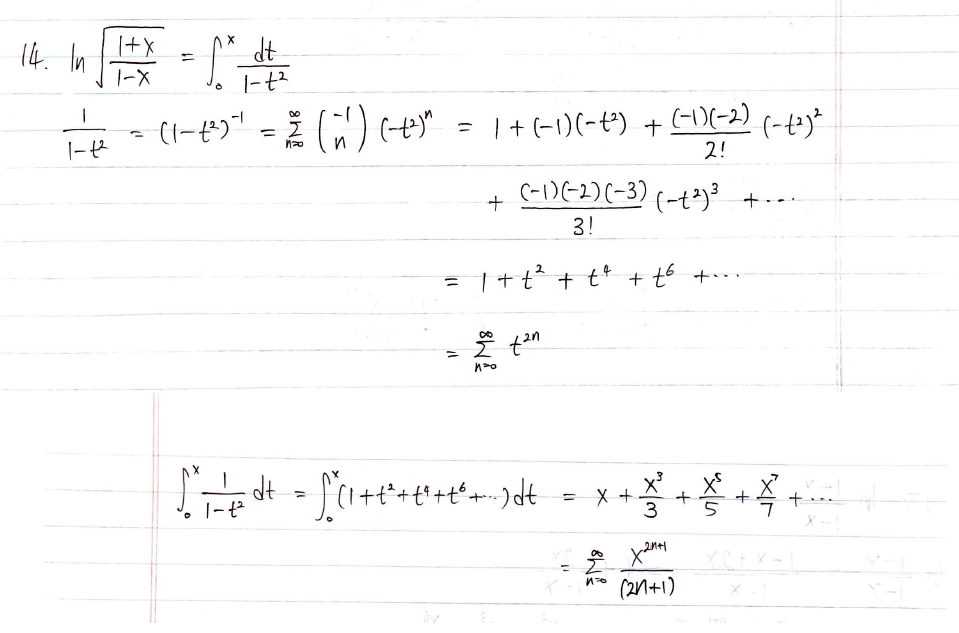 14. ln √((1+x)/(1-x)) = ∫₀ˣ dt/(1-t²)
1/(1-t²) = (1-t²)⁻¹ = Σ_{n=0}^{∞} (-1 n) (-t²)ⁿ = 1 + (-1)(-t²) + (-1)(-2)/2! (-t²)²
+ (-1)(-2)(-3)/3! (-t²)³ + ...
= 1 + t² + t⁴ + t⁶ + ...
= Σ_{n=0}^{∞} t²ⁿ
∫₀ˣ 1/(1-t²) dt = ∫₀ˣ (1+t²+t⁴+t⁶+...) dt = x + x³/3 + x⁵/5 + x⁷/7 + ...
= Σ_{n=0}^{∞} x²ⁿ⁺¹/(2n+1)